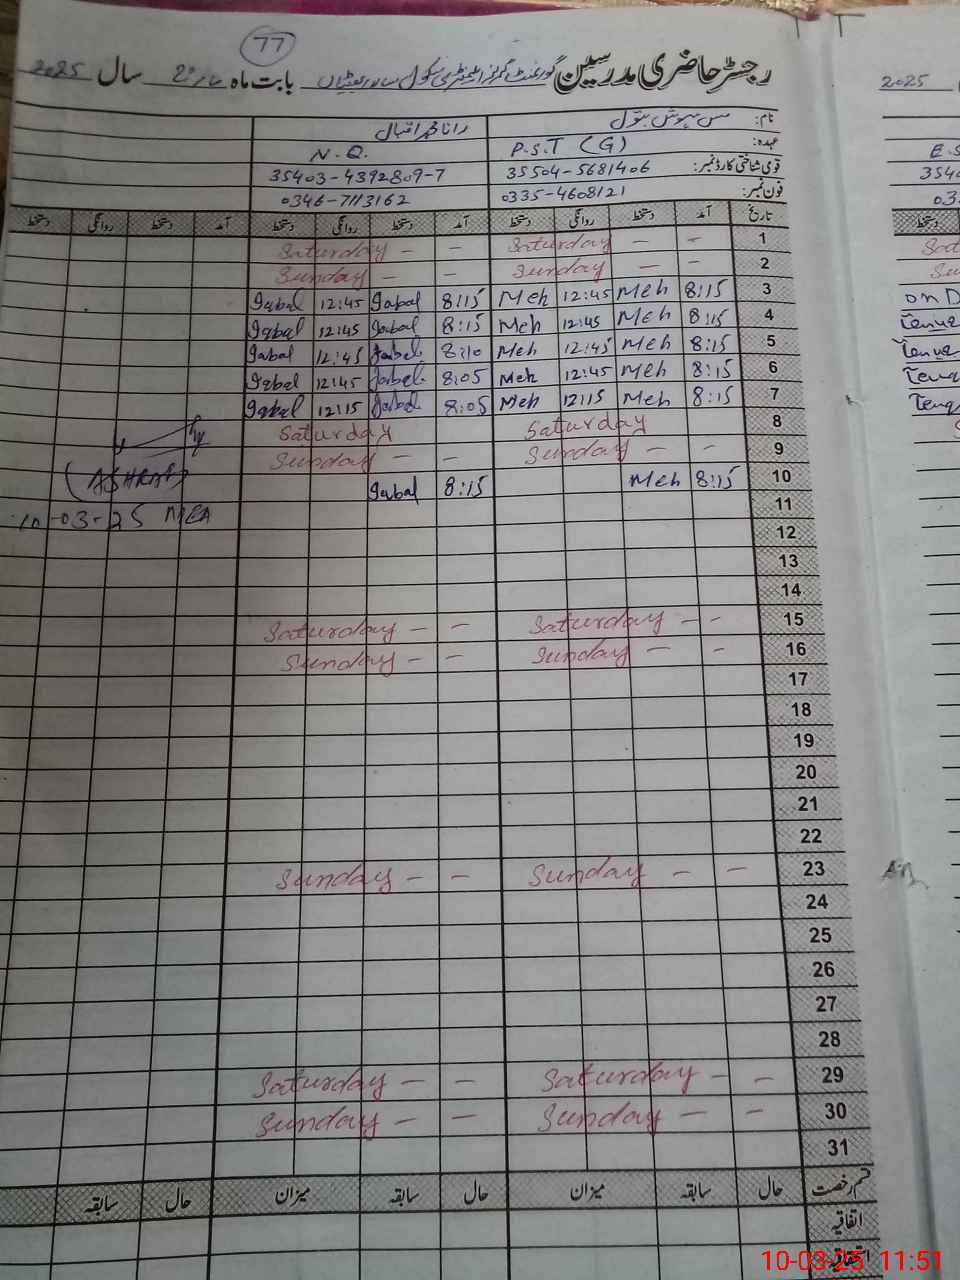 77
رجسٹر حاضری مدرسین گورنمنٹ گرلز ایلیمنٹری سکول بابت ماہ مارچ سال 2025
نام: مس مہوش بتول رانا محمد اقبال
عہدہ: P.S.T (G) N.Q.
قومی شناختی کارڈ نمبر: 35504-5681406 35403-4392809-7
فون نمبر: 0335-4608121 0346-7113162
تاریخ آمد دستخط روانگی دستخط آمد دستخط روانگی دستخط آمد دستخط روانگی دستخط
1 - - Saturday - - Saturday
2 - - Sunday - - Sunday
3 8:15 Meh 12:45 Meh 8:15 Iqbal 12:45 Iqbal
4 8:15 Meh 12:45 Meh 8:15 Iqbal 12:45 Iqbal
5 8:15 Meh 12:45 Meh 8:10 Iqbal 12:45 Iqbal
6 8:15 Meh 12:45 Meh 8:05 Iqbal 12:45 Iqbal
7 8:15 Meh 12:15 Meh 8:05 Iqbal 12:15 Iqbal
8 Saturday Saturday
9 - - Sunday - - Sunday
10 8:15 Meh 8:15 Iqbal (ASHRAF)
11 10-03-25 MEA
12
13
14
15 - - Saturday - - Saturday
16 - - Sunday - - Sunday
17
18
19
20
21
22
23 - - Sunday - - Sunday
24
25
26
27
28
29 - - Saturday - - Saturday
30 - - Sunday - - Sunday
31
قسم رخصت حال سابقہ میزان حال سابقہ میزان حال سابقہ
اتفاقیہ
2025
دستخط
on D
10-03-25 11:51